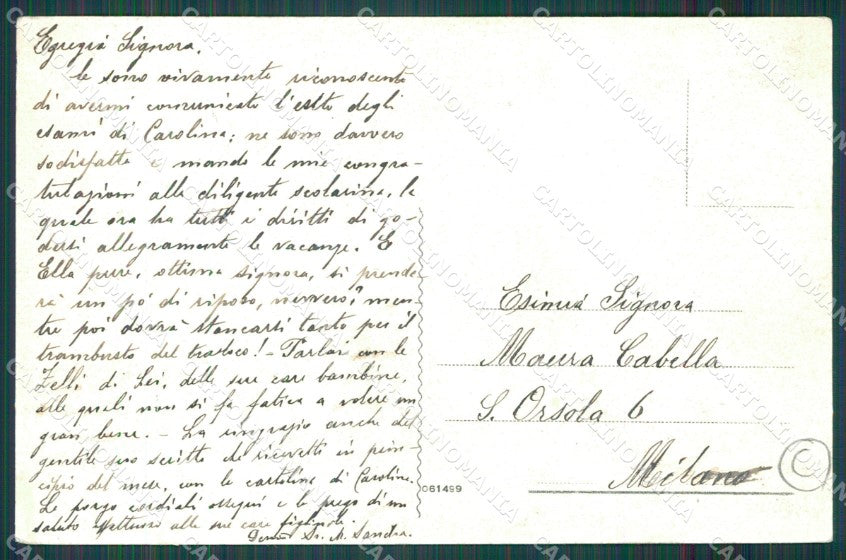 Egregia Signora,
Le sono vivamente riconoscente
di avermi comunicato l'esito degli
esami di Carolina; ne sono davvero
sodisfatta e mando le mie congra-
tulazioni alla diligente scolarina, la
quale ora ha tutti i diritti di go-
dersi allegramente le vacanze. E
Ella pure, ottima signora, si prende-
rà un pò di riposo, nevvero? men-
tre poi dovrà stancarsi tanto per il
trambusto del trasloco! - Parlai con le
Zelli di Lei, delle sue care bambine,
alle quali non si fa fatica a volere un
gran bene. - La ringrazio anche del
gentile suo scritto che ricevetti in prin-
cipio del mese, con le cartoline di Carolina.
Le porgo cordiali ossequi e la prego di un
saluto affettuoso alle sue care figliuole.
Sr. M. Sandra.
061499
Esimia Signora
Maura Cabella
S. Orsola 6
Milano
C
CARTOLINOMANIA